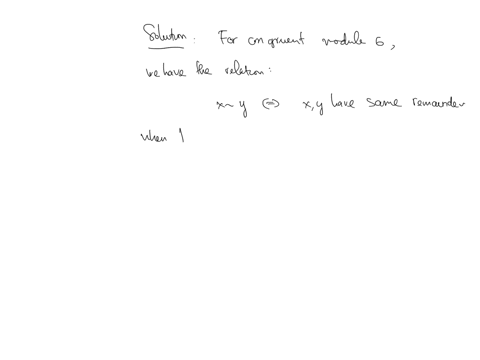 Solution: For congruent module 6,
we have the relation:
x~y ⇔ x,y have same remainder
when